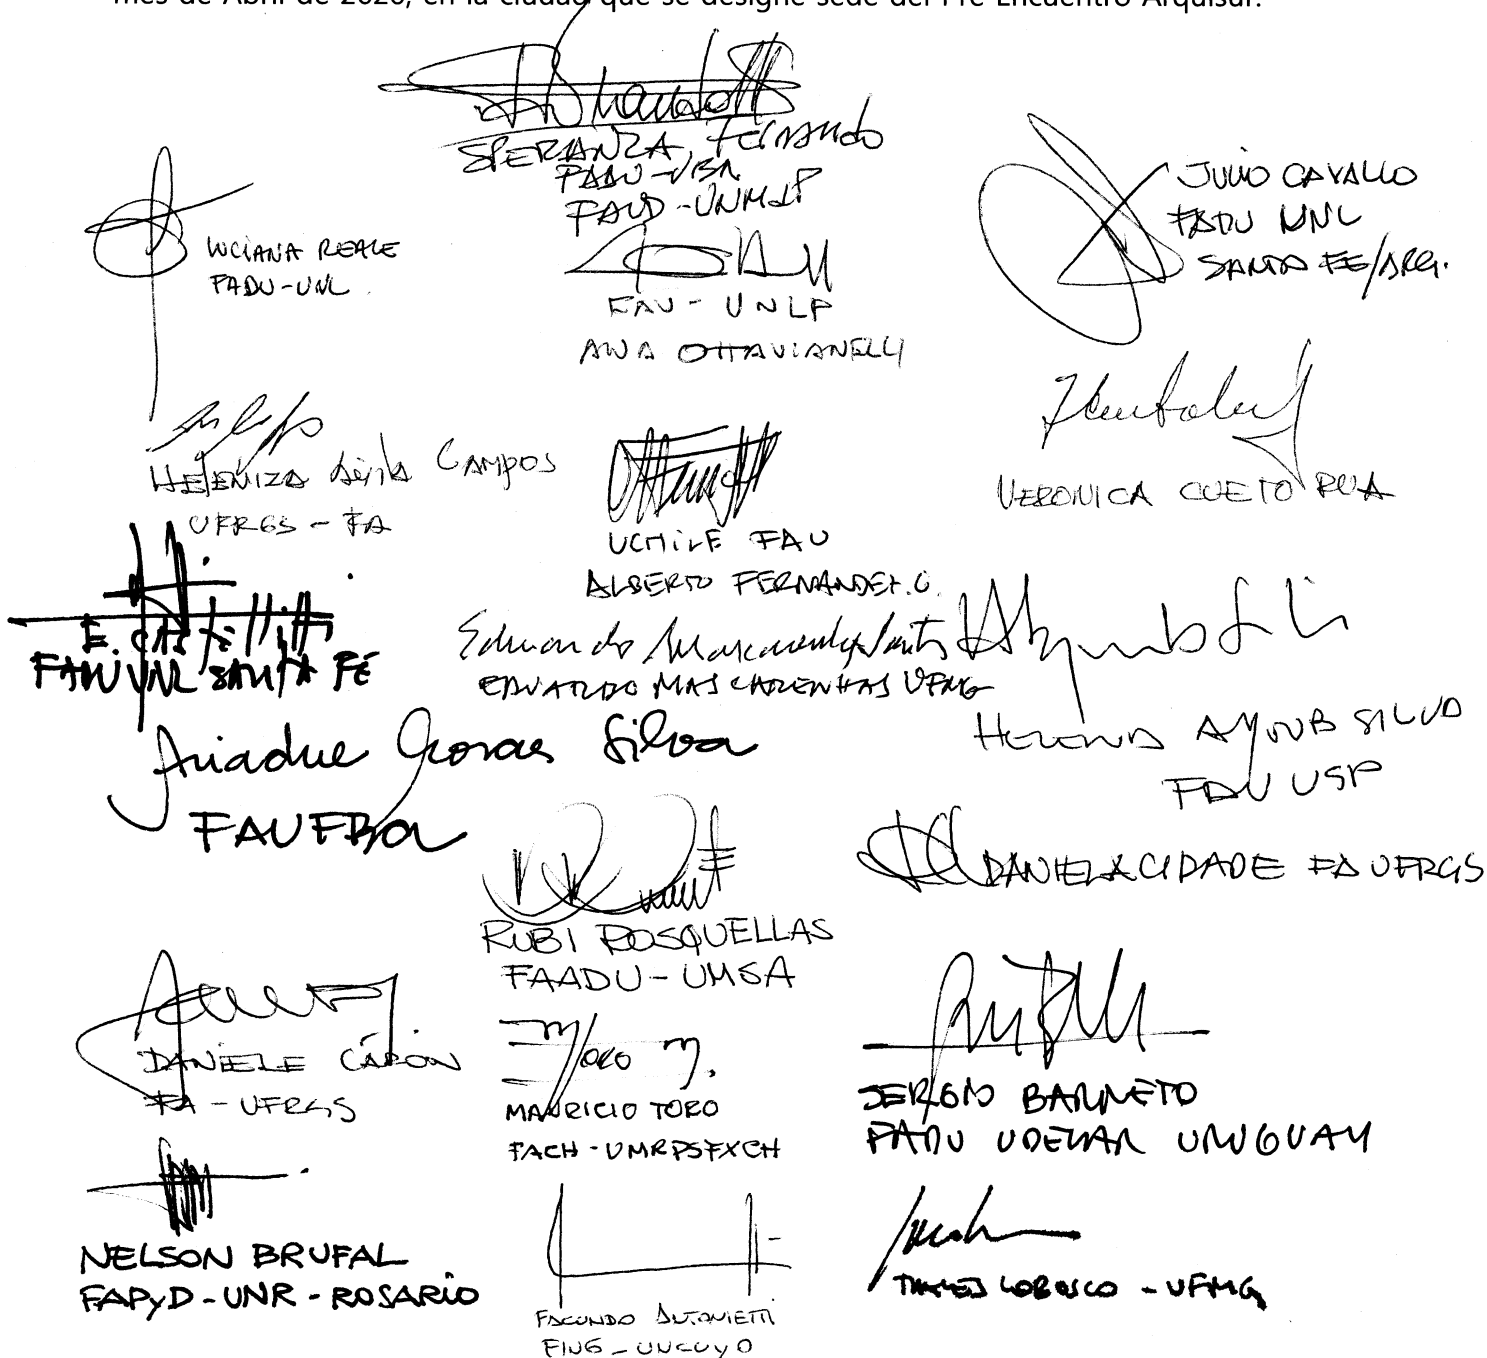 mes de Abril de 2020, en la ciudad que se designe sede del Pre Encuentro Arquisur.
SPERANZA, Fernando
FADU-UBA
FAUD-UNMdP
JULIO CAVALLO
FADU UNL
SANTA FE/ARG.
LUCIANA REALE
FADU-UNL
FAU - UNLP
ANA OTTAVIANELLI
HELENIZA Ávila CAMPOS
UFRGS - FA
VERONICA CUETO RUA
UCHILE FAU
ALBERTO FERNANDEZ.
E. CASTELLITTI
FADU UNL SANTA FE
Eduardo Mascarenhas Santos
EDUARDO MASCARENHAS UFMG
HELENA AYOUB SILVA
FAU USP
Ariadne Moraes Silva
FAUFBA
DANIELA CIDADE FA UFRGS
RUBI ROSQUELLAS
FAADU-UMSA
DANIELE CARON
FA - UFRGS
Toro M.
MAURICIO TORO
FACH-UMRPSFXCH
SERGIO BARRETO
FADU UDELAR URUGUAY
NELSON BRUFAL
FAPyD-UNR-ROSARIO
FACUNDO ANTONIETTI
FING-UNCUYO
LOBOSCO - UFMG